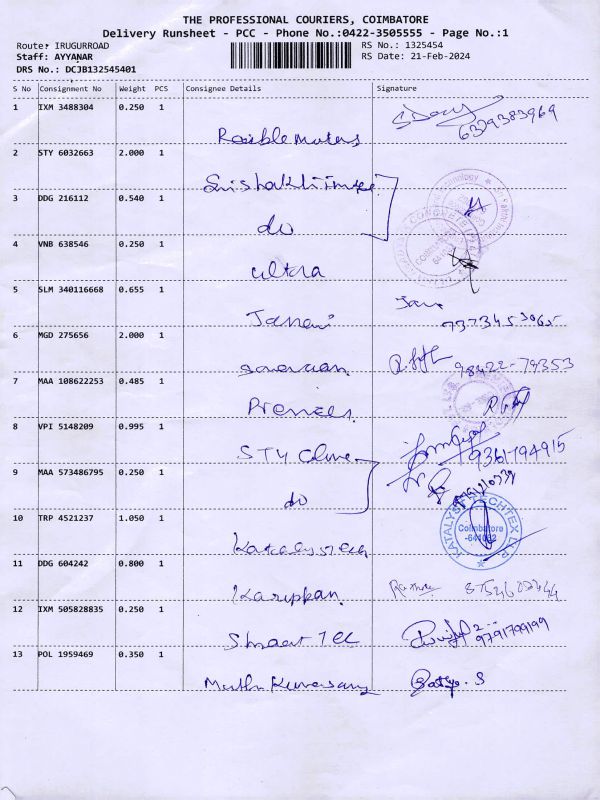 THE PROFESSIONAL COURIERS, COIMBATORE
Delivery Runsheet - PCC - Phone No.:0422-3505555 - Page No.:1
Route: IRUGURROAD RS No.: 1325454
Staff: AYYANAR RS Date: 21-Feb-2024
DRS No.: DCJB132545401
S No Consignment No Weight PCS Consignee Details Signature
1 IXM 3488304 0.250 1
6379383969
2 STY 6032663 2.000 1
3 DDG 216112 0.540 1
do
4 VNB 638546 0.250 1
ultra
5 SLM 340116668 0.655 1
Janani
6 MGD 275656 2.000 1
98422-79353
7 MAA 108622253 0.485 1
8 VPI 5148209 0.995 1
9361-794915
9 MAA 573486795 0.250 1
do
10 TRP 4521237 1.050 1
KATALYST TECHTEX LLP
Coimbatore
-641062
11 DDG 604242 0.800 1
Karuppan
12 IXM 505828835 0.250 1
9791799199
13 POL 1959469 0.350 1
Muthu Kumarasamy Sathya.S